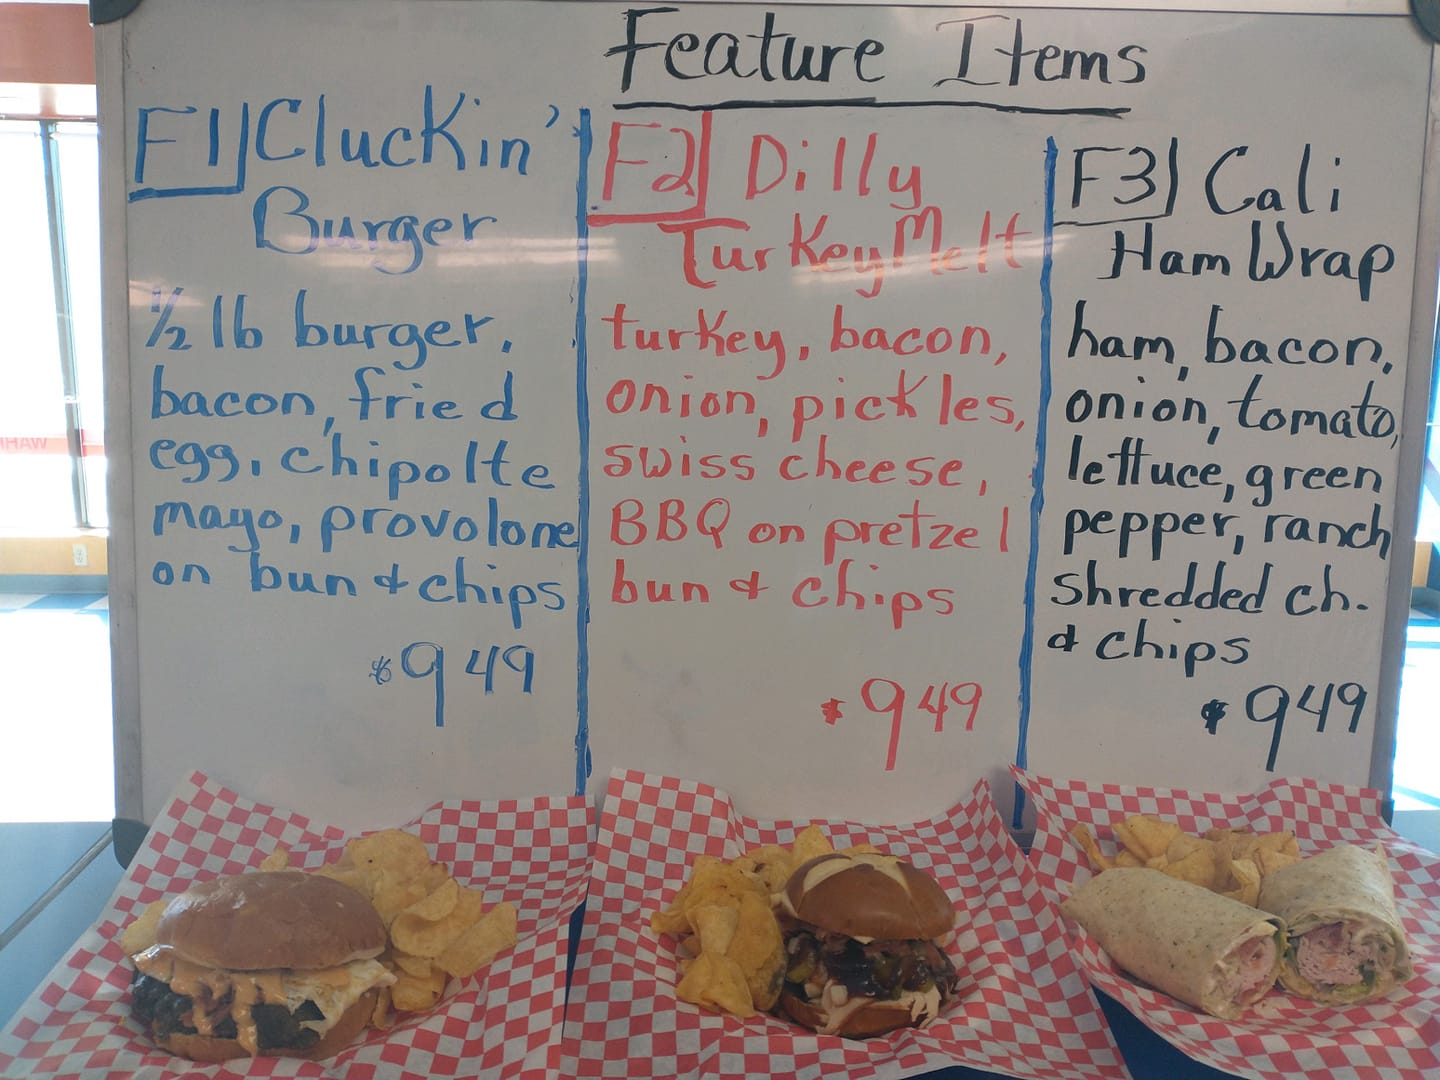 Feature Items
F1 Cluckin'
Burger
1/2 lb burger,
bacon, fried
egg, chipolte
mayo, provolone
on bun & chips
$9 49
F2 Dilly
Turkey Melt
turkey, bacon,
onion, pickles,
swiss cheese,
BBQ on pretzel
bun & chips
$9 49
F3 Cali
Ham Wrap
ham, bacon,
onion, tomato,
lettuce, green
pepper, ranch
shredded ch.
& chips
$9 49